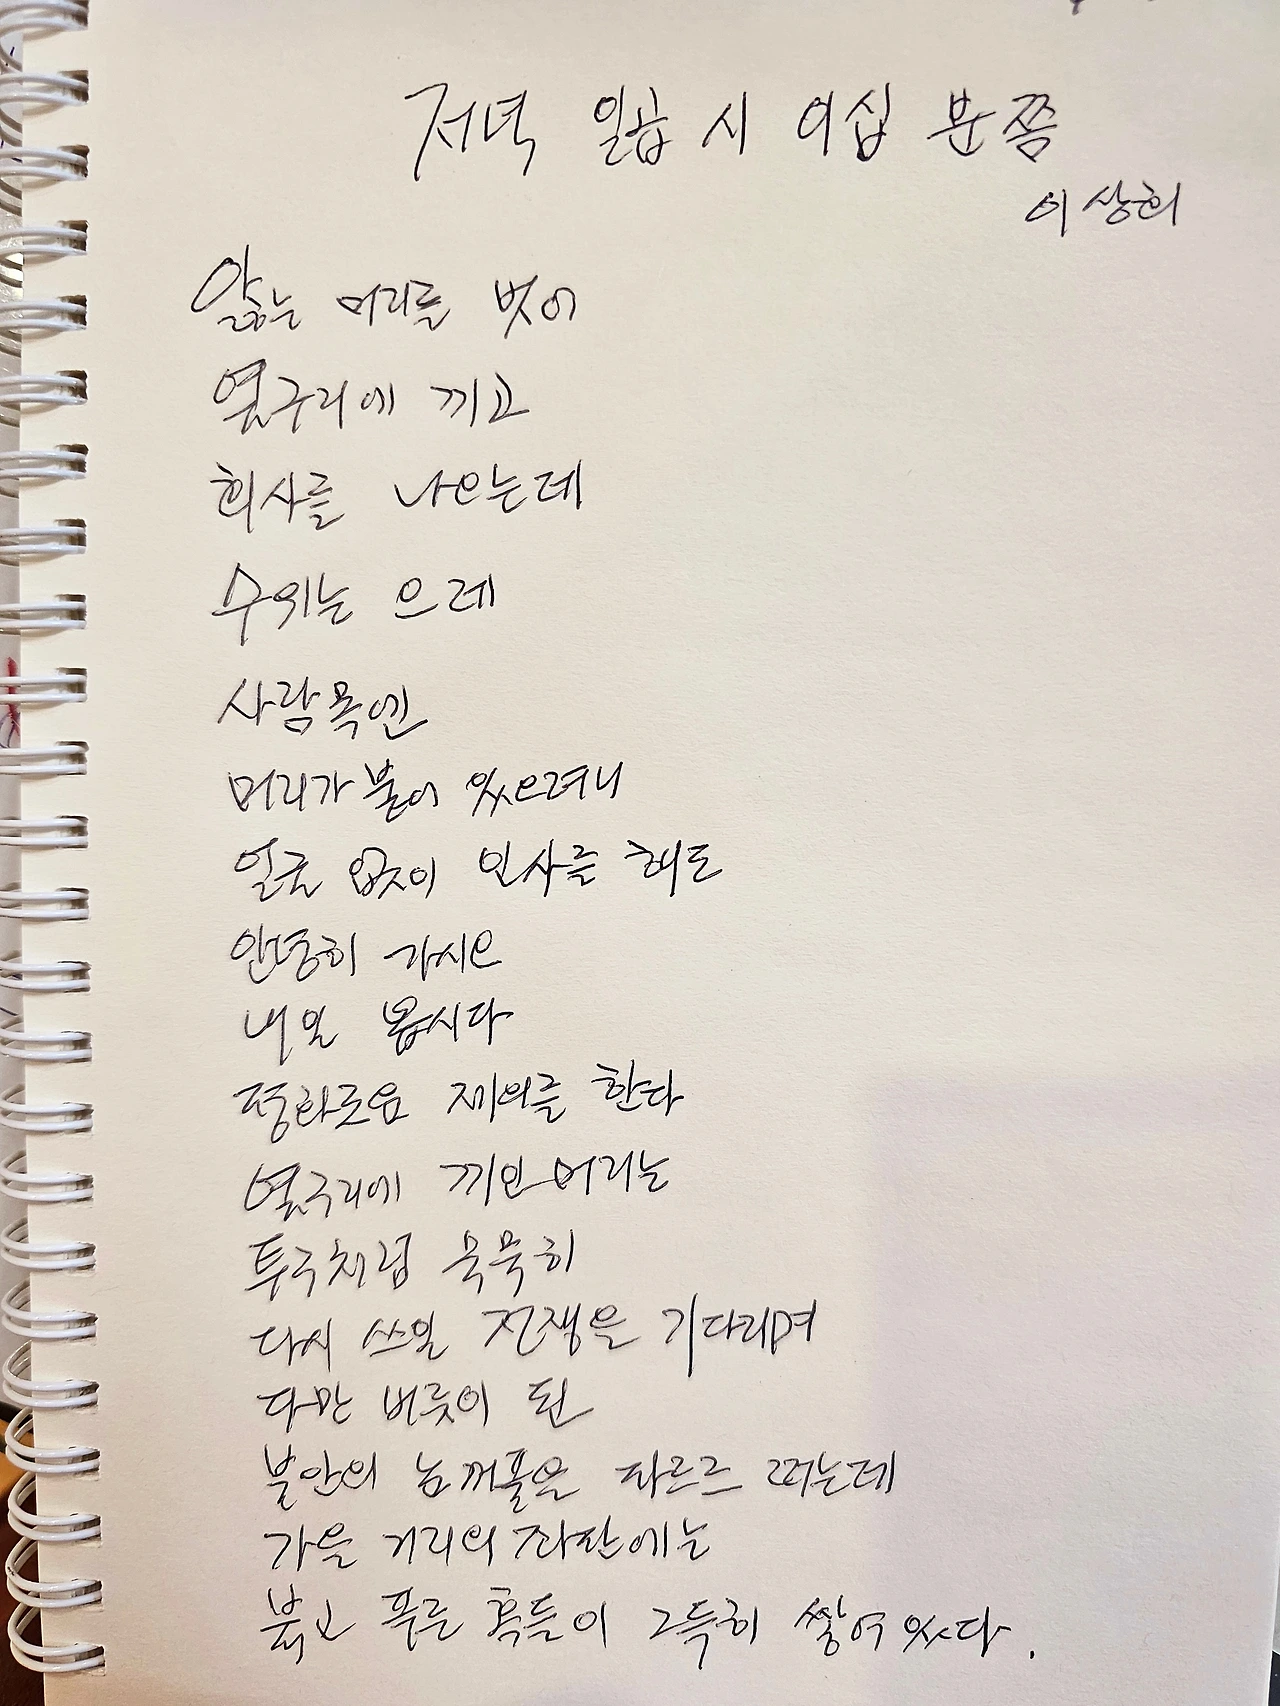 저녁 일곱 시 이십 분쯤
이상희
앓는 머리를 벗어
옆구리에 끼고
회사를 나오는데
수위는 으레
사람 목엔
머리가 붙어 있으려니
얼굴 없이 인사를 해도
안녕히 가시오
내일 봅시다
평화로운 제의를 한다
옆구리에 끼인 머리는
투구처럼 묵묵히
다시 쓰일 전쟁을 기다리며
다만 버릇이 된
불안의 눈꺼풀은 파르르 떠는데
가을 거리의 좌판에는
붉고 푸른 혹들이 그득히 쌓여 있다.